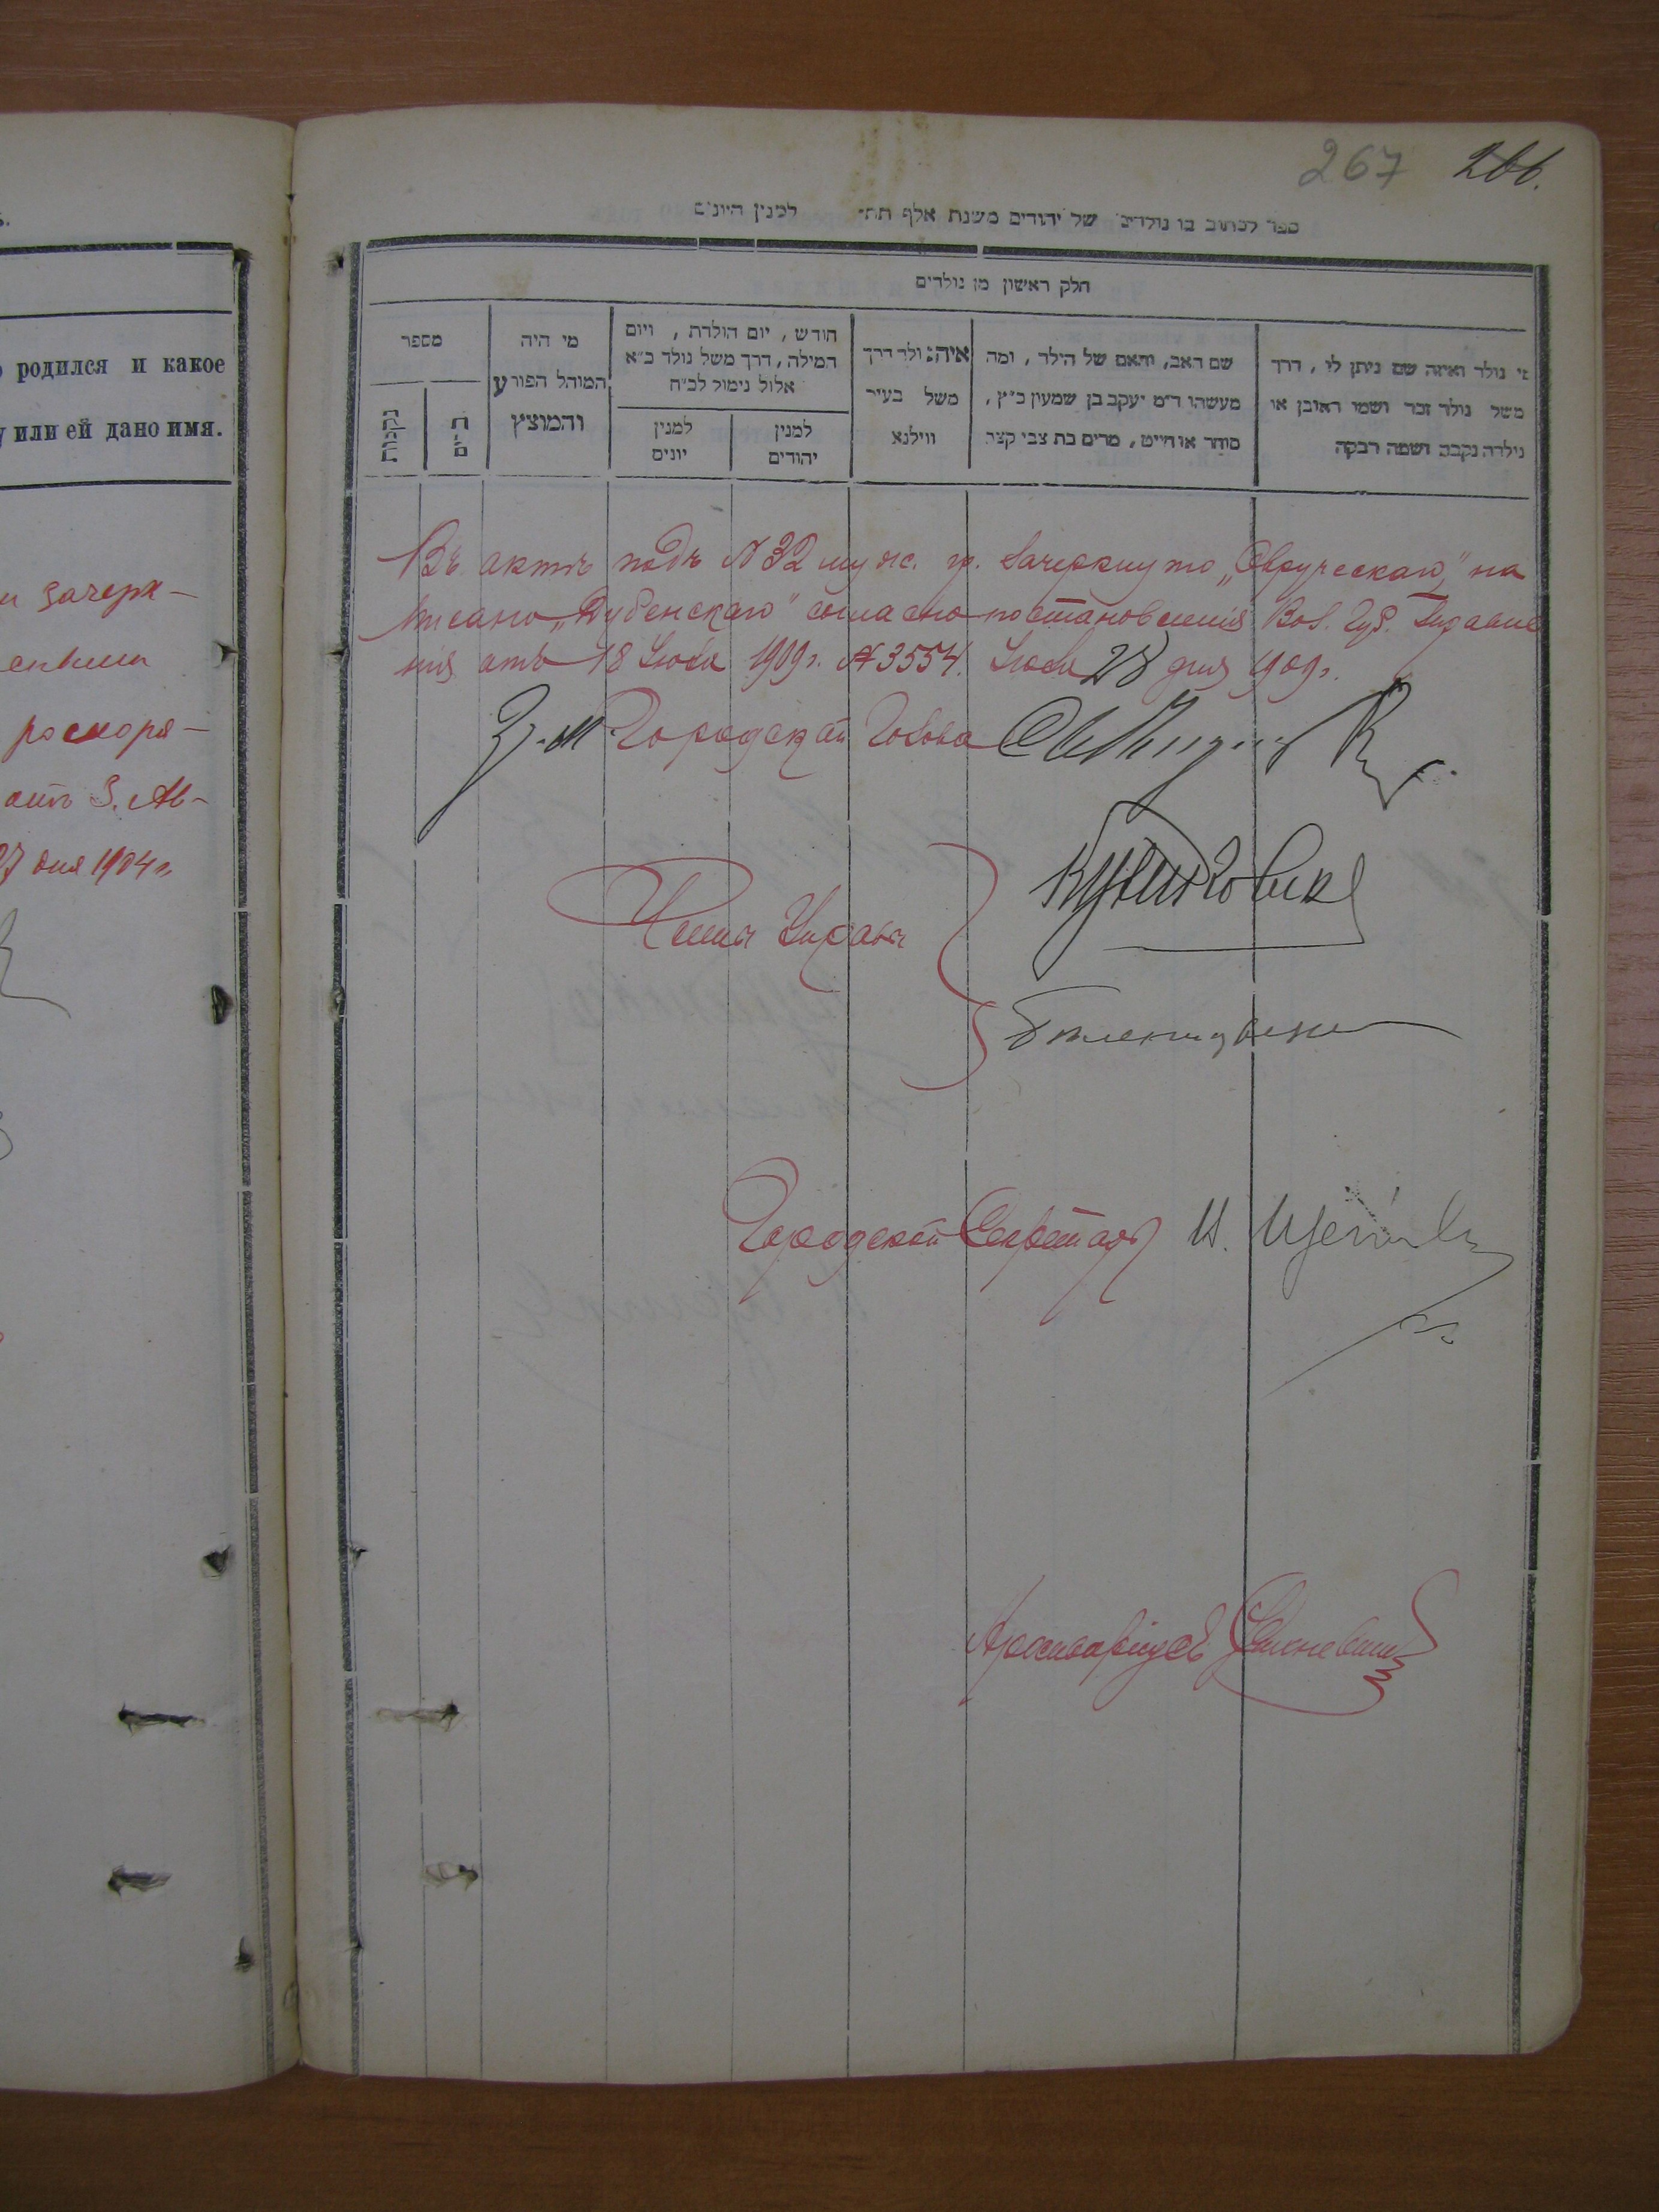 267 266.
ספר לכתוב בו נולדים של יהודים משנת אלף תת״ למנין היונים
חלק ראשון מן נולדים
מי נולד ואיזה שם ניתן לו, דרך
משל נולד זכר ושמו ראובן או
נולדה נקבה ושמה רבקה
שם האב, והאם של הילד, ומה
מעשהו ד״מ יעקב בן שמעון כ״ץ,
סוחר או חייט, מרים בת צבי קצב
איה נולד דרך
משל בעיר
ווילנא
חודש, יום הולדת, ויום
המילה, דרך משל נולד כ״א
אלול נימול לכ״ח
למנין
יהודים
למנין
יונים
מי היה
המוהל הפורע
והמוצץ
מספר
זכרים
נקבות
Въ актѣ подъ N 32 муж. гр. зачеркнуто „Овручскаго,” на
писано „Дубенскаго” согласно постановленія Вол. Губ. Правле
нія отъ 18 Іюля 1909 г. N 3554. Іюля 28 дня 1909 г.
З. м. Городской Голова
Члены Управы
Городской Секретарь И.
родился и какое
у или ей дано имя.
зачерк-
распоря-
отъ 3. Ав-
27 дня 1904 г.